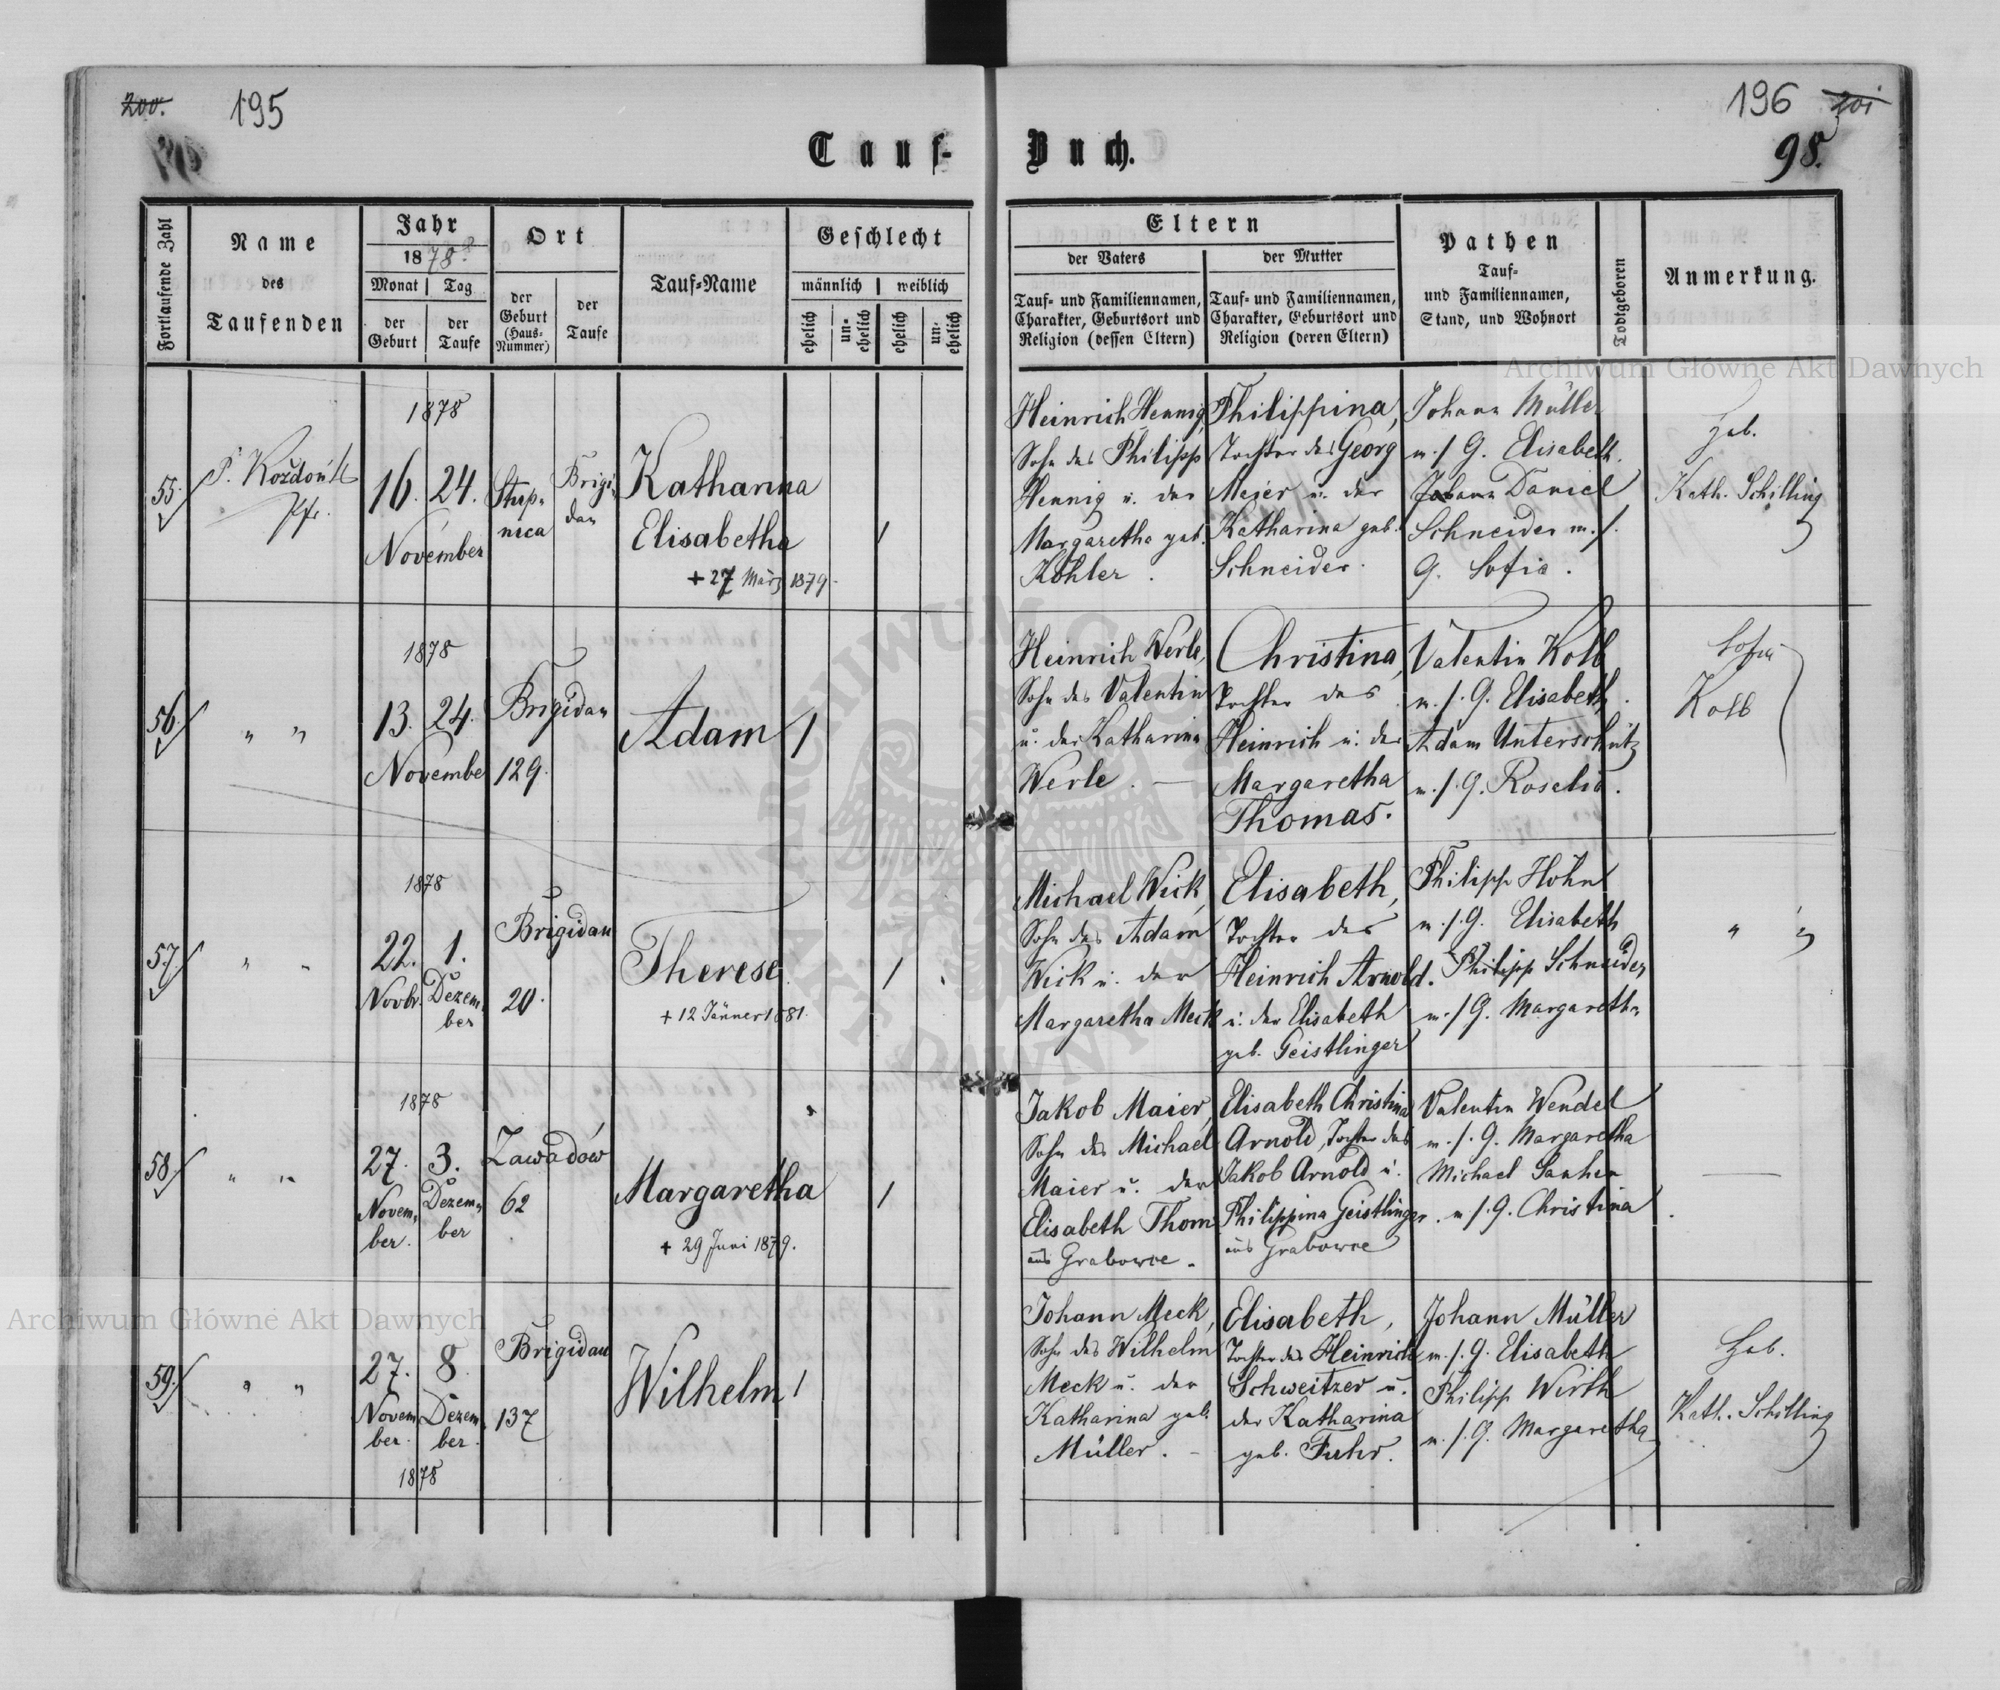 200. 195
196 201
98.
Tauf-Buch.
Fortlaufende Zahl
Name
des
Taufenden
Jahr
1878
Monat Tag
der Geburt
der Taufe
Ort
der Geburt (Haus-Nummer)
der Taufe
Tauf=Name
Geschlecht
männlich weiblich
ehelich un-ehelich ehelich un-ehelich
Eltern
der Vaters
Tauf- und Familiennamen,
Charakter, Geburtsort und
Religion (dessen Eltern)
der Mutter
Tauf- und Familiennamen,
Charakter, Geburtsort und
Religion (deren Eltern)
Pathen
Tauf-
und Familiennamen,
Stand, und Wohnort
Todtgeboren
Anmerkung.
Archiwum Główne Akt Dawnych
55.
Pfr.
1878
16. 24.
November
Stryp-
nica
Brigi-
dau
Katharina
Elisabetha
+ 27 März 1879.
1
Heinrich Hennig,
Sohn des Philipp
Hennig u. der
Margaretha geb.
Köhler.
Philippina,
Tochter des Georg
Meier u. der
Katharina geb.
Schneider.
Johann Müller
m./G. Elisabeth.
Johann Daniel
Schneider m./.
G. Sofie.
Heb.
Kath. Schilling
56.
" "
1878
13. 24.
Novembe
Brigidau
129.
Adam
1
Heinrich Werle,
Sohn des Valentin
u. der Katharina
Werle. —
Christina,
Tochter des
Heinrich u. der
Margaretha
Thomas.
Valentin Kolb
m./.G. Elisabeth.
Adam Unterschütz
m./.G. Rosalia.
Sofia
Kolb
57.
" "
1878
22. 1.
Novbr. Dezem-
ber
Brigidau
20.
Therese
+ 12 Jänner 1881.
1
Michael Wick,
Sohn des Adam
Wick u. der
Margaretha Meck
Elisabeth,
Tochter des
Heinrich Arnold.
u. der Elisabeth
geb. Geistlinger
Philipp Höhn
m./G. Elisabeth
Philipp Schneider
m./G. Margaretha
" "
58.
" "
1878
27. 3.
Novem-
ber.
Dezem-
ber
Zawadów
62
Margaretha
+ 29 Juni 1879.
1
Jakob Maier,
Sohn des Michael
Maier u. der
Elisabeth Thom
aus Grabowce.
Elisabeth Christina
Arnold, Tochter des
Jakob Arnold u.
Philippina Geistlinger.
aus Grabowce
Valentin Wendel
m./.G. Margaretha
Michael
m/.G. Christina
—
59.
" "
27. 8.
Novem-
ber.
Dezem-
ber.
1878
Brigidau
137
Wilhelm
1
Johann Meck,
Sohn des Wilhelm
Meck u. der
Katharina geb.
Müller. -
Elisabeth,
Tochter des Heinrich
Schweitzer u.
der Katharina
geb. Fuhr.
Johann Müller
m./.G. Elisabeth
Philipp Wirth
m./.G. Margaretha
Heb.
Kath. Schilling
Archiwum Główne Akt Dawnych